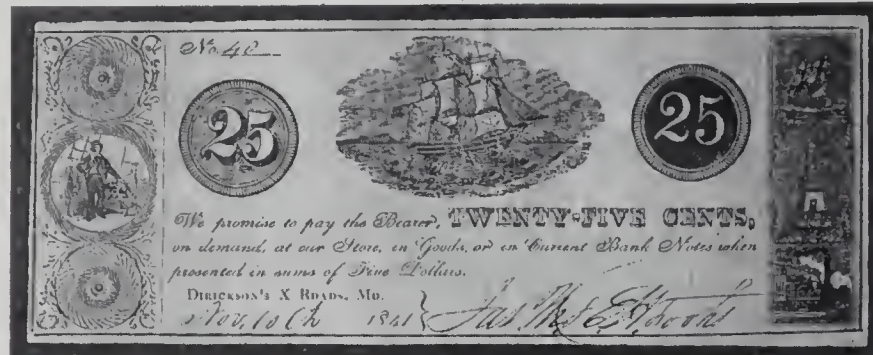 No. 40
25
25
We promise to pay the Bearer, TWENTY-FIVE CENTS,
on demand, at our Store, in Goods, or in Current Bank Notes when
presented in sums of Five Dollars.
DIRICKSON'S X ROADS, MD.
Nov, 10th 1841